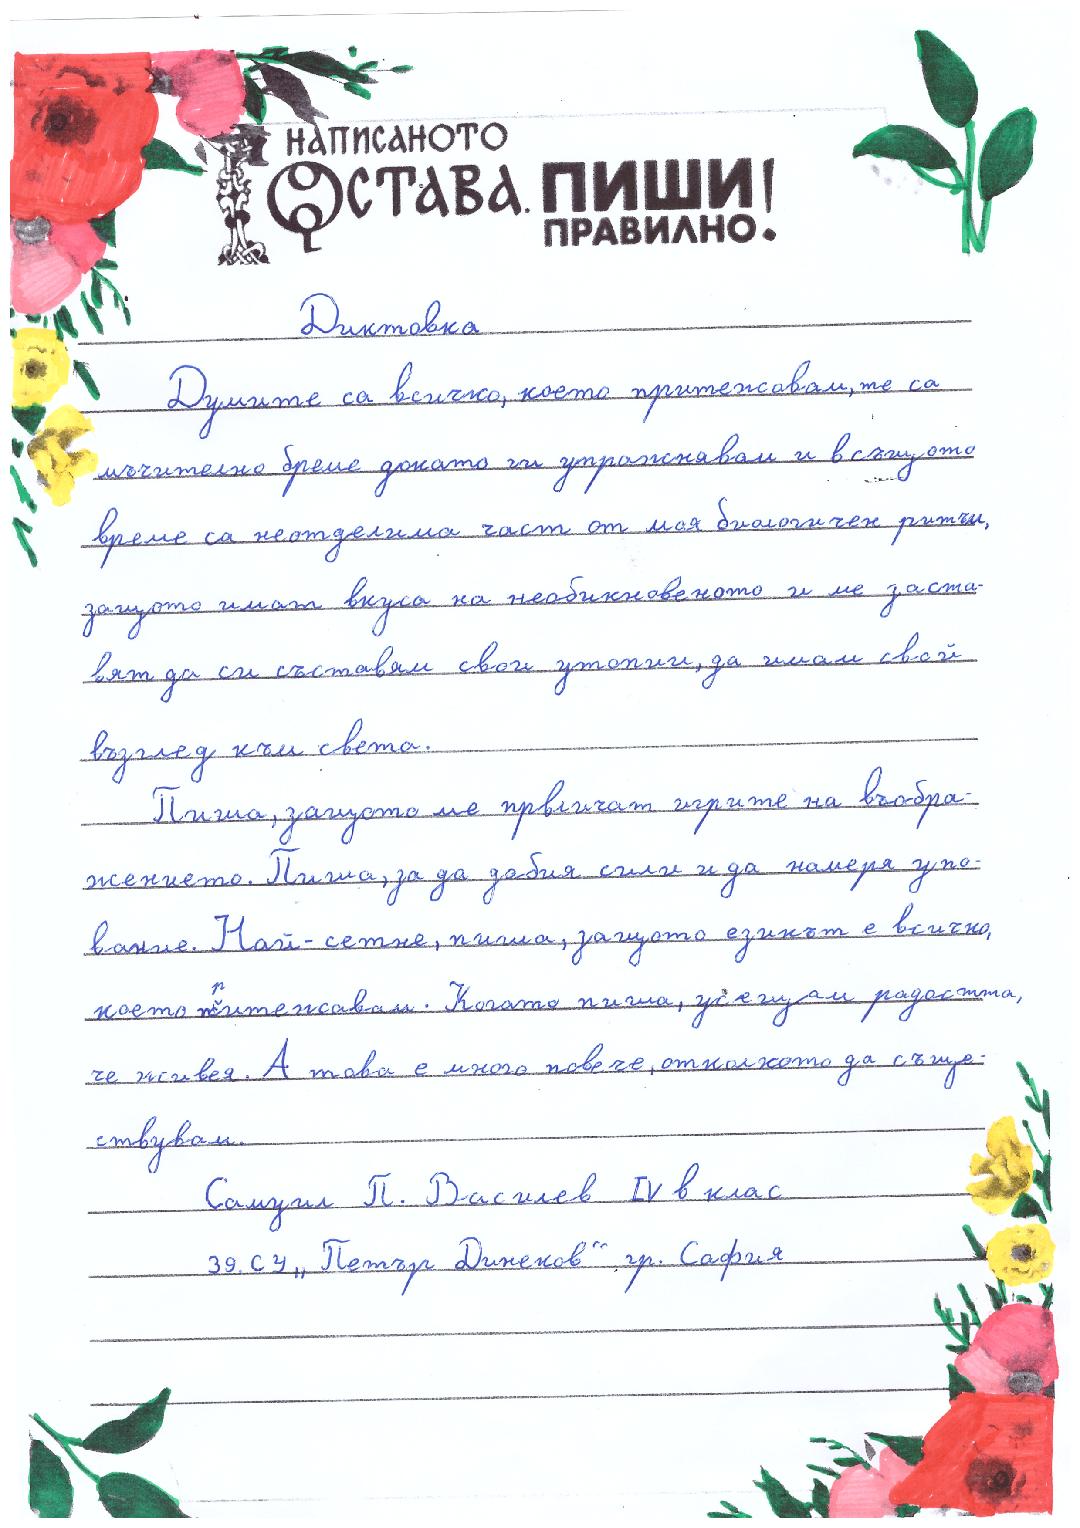 НАПИСАНОТО
ОСТАВА. ПИШИ
ПРАВИЛНО!
Диктовка
Думите са всичко, което притежавам, те са
мъчително бреме докато ги упражнявам и в същото
време са неотделима част от моя биологичен ритъм,
защото имат вкуса на необикновеното и ме заста-
вят да си съставям свои утопии, да имам свой
възглед към света.
Пиша, защото ме првличат игрите на въобра-
жението. Пиша, за да добия сили и да намеря упо-
вание. Най-сетне, пиша, защото езикът е всичко,
което притежавам. Когато пиша, усещам радостта,
че живея. А това е много повече, отколкото да съще-
ствувам.
Самуил П. Василев IV в клас
39. СУ „Петър Динеков“ гр. София